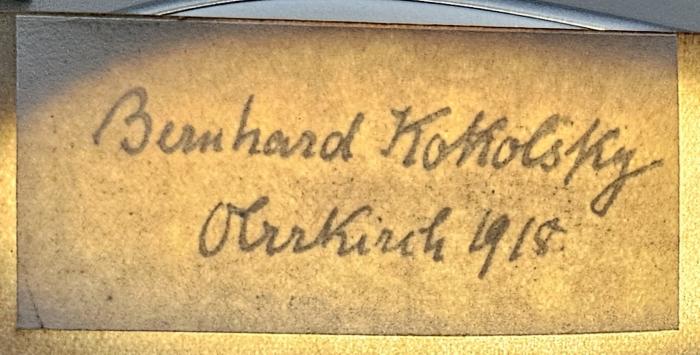 Bernhard Kokolsky
Oberkirch 1918